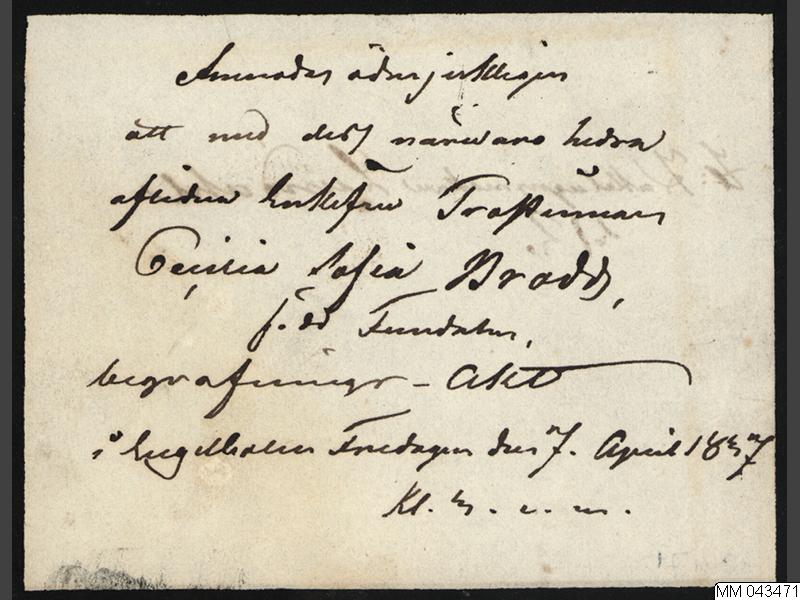 Anmodas ödmjukligen
att med dess närwaro hedra
aflidna Enkefru Prostinnan
Cecilia Sofia Brodd,
född Fundahn,
begrafnings-Akt
i Engelholm Fredagen den 7. April 1837
Kl. 3. e. m.
MM 043471